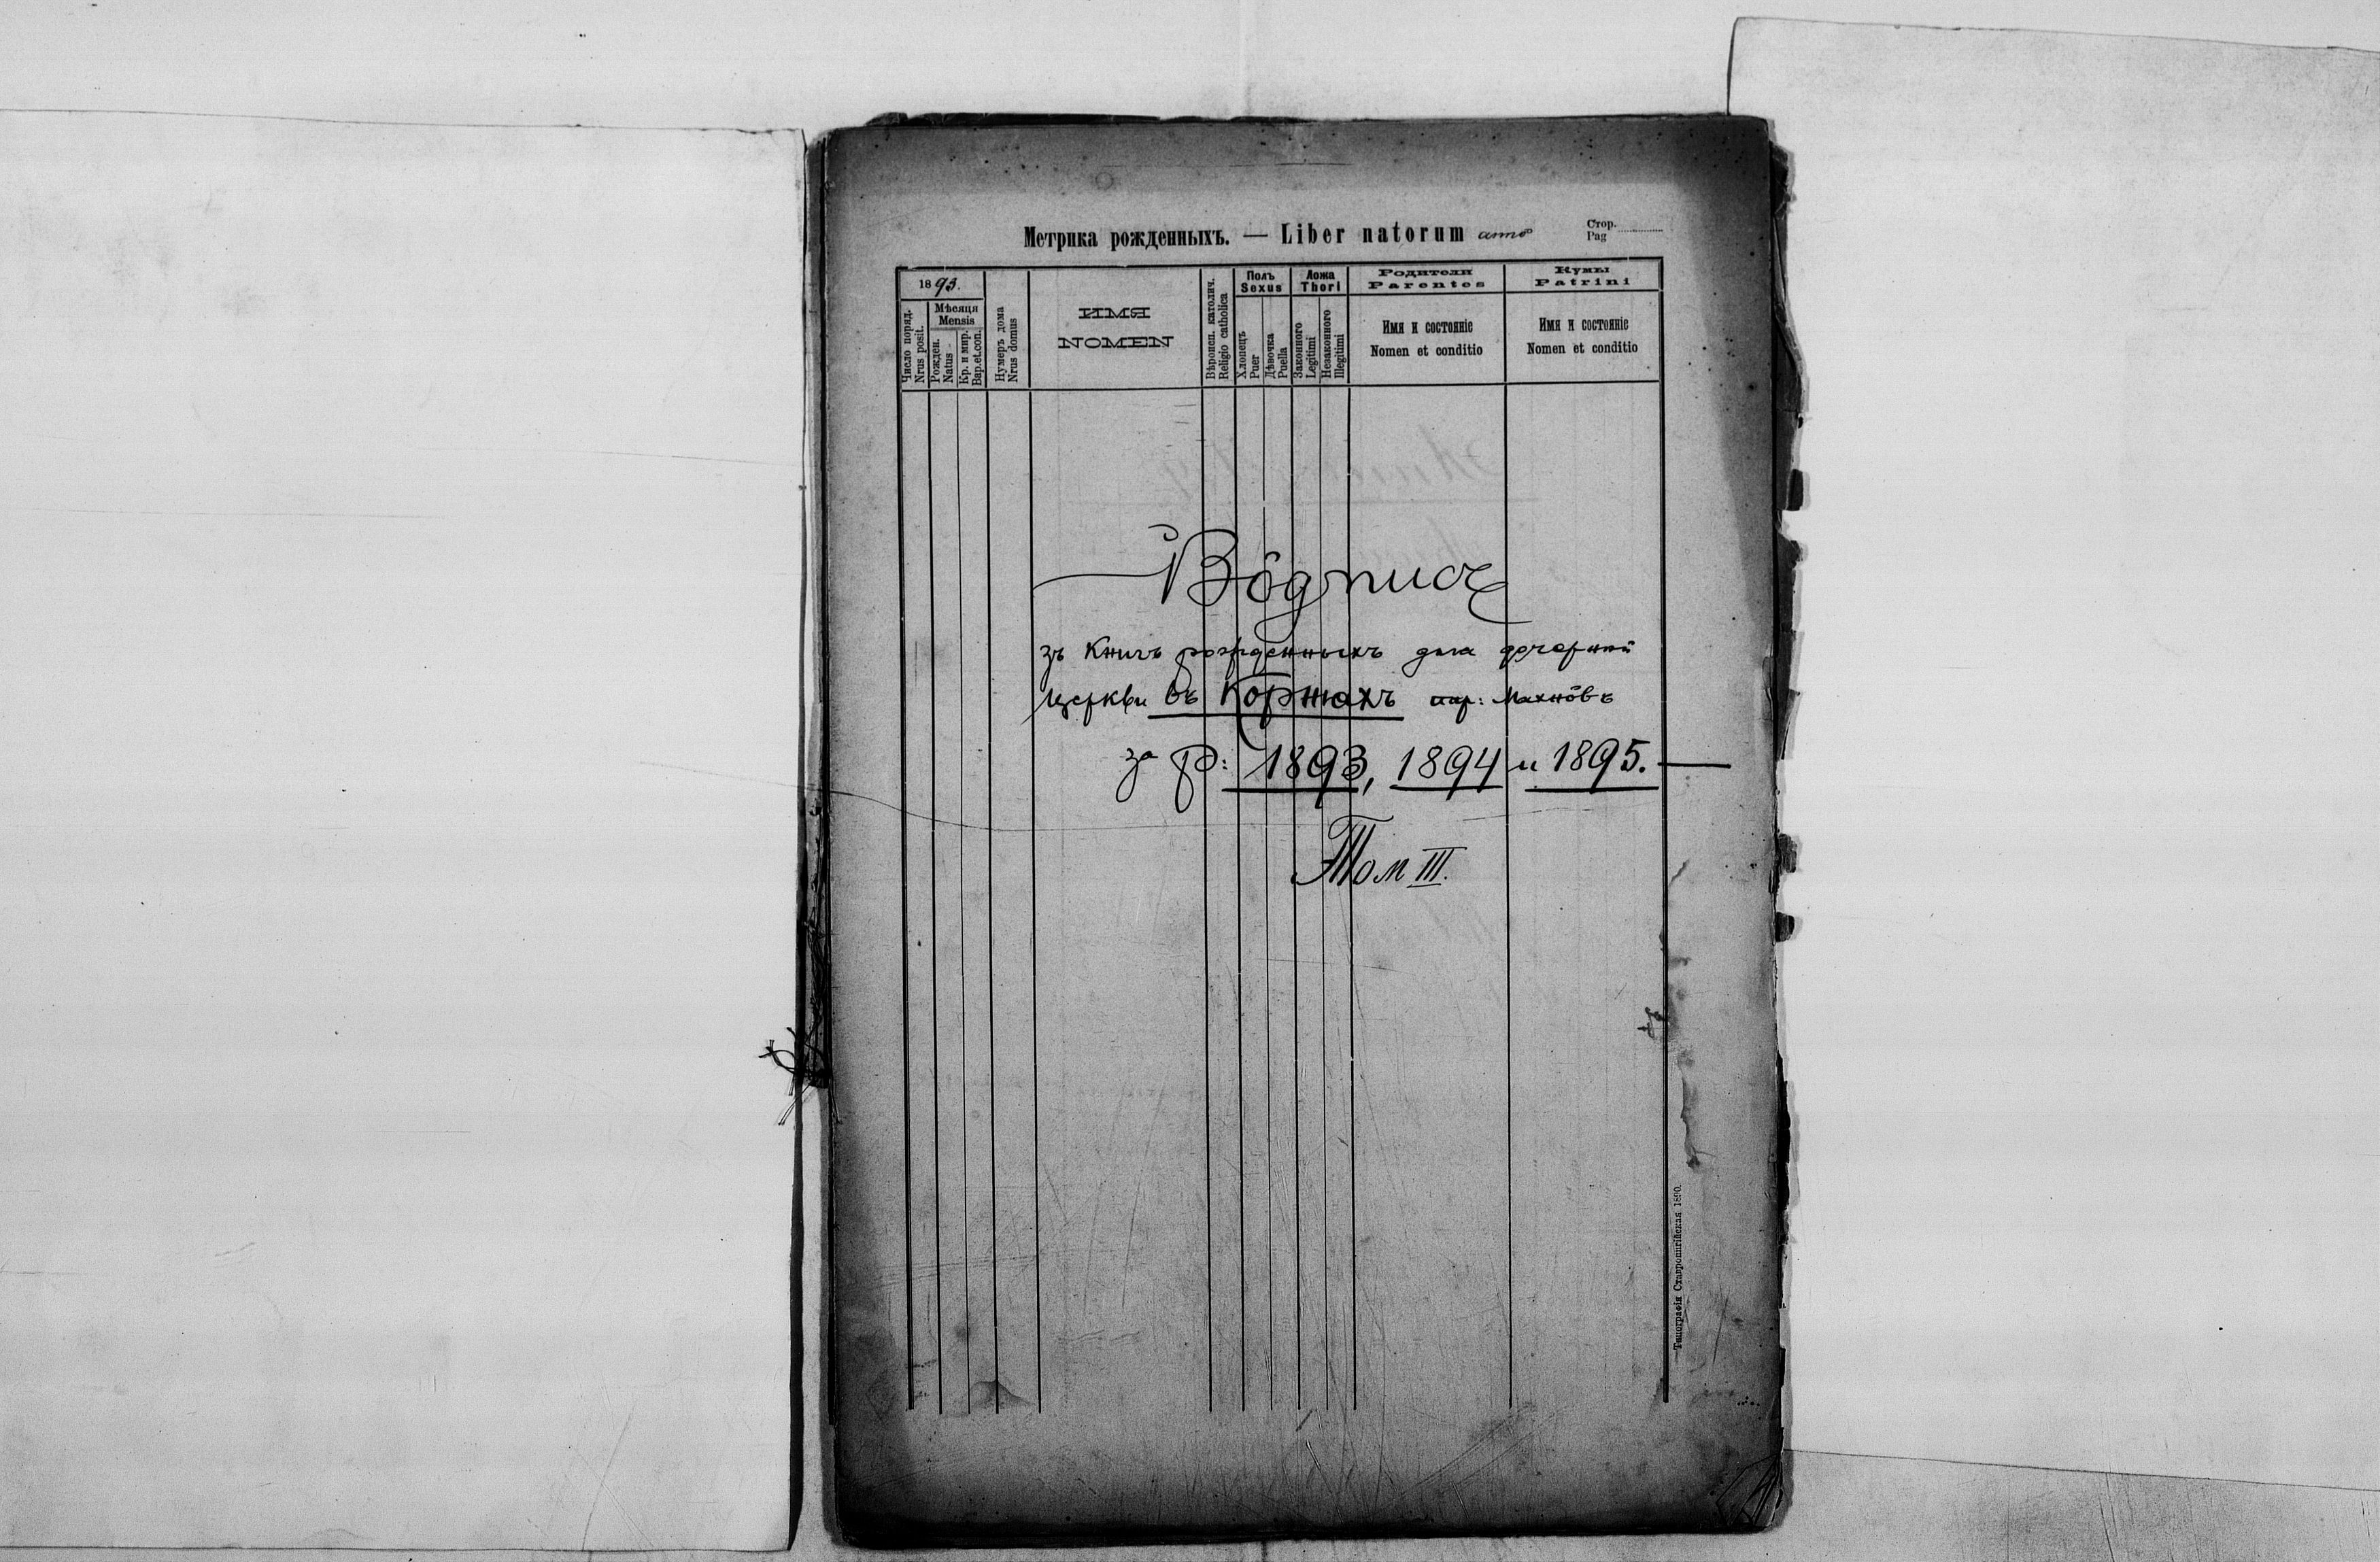 Метрика рожденныхъ. — Liber natorum anno
Стор.
Pag
1893.
Число поряд.
Nrus posit.
Мѣсяця
Mensis
Рожден.
Natus
Кр. и мир.
Bap.et.con.
Нумеръ дома
Nrus domus
ИМЯ
NOMEN
Вѣроисп. католич.
Religio catholica
Полъ
Sexus
Хлопецъ
Puer
Дѣвочка
Puella
Ложа
Thori
Законного
Legitimi
Незаконного
Illegitimi
Родители
Parentes
Имя и состояніе
Nomen et conditio
Кумы
Patrini
Имя и состояніе
Nomen et conditio
Вôдпись
зъ книгъ рожденныхъ для дочернои
церкви въ Коржахъ пар: Махнôвъ
за р: 1893, 1894 и 1895. —
Том III.
Типографія Ставропигійская 1890.